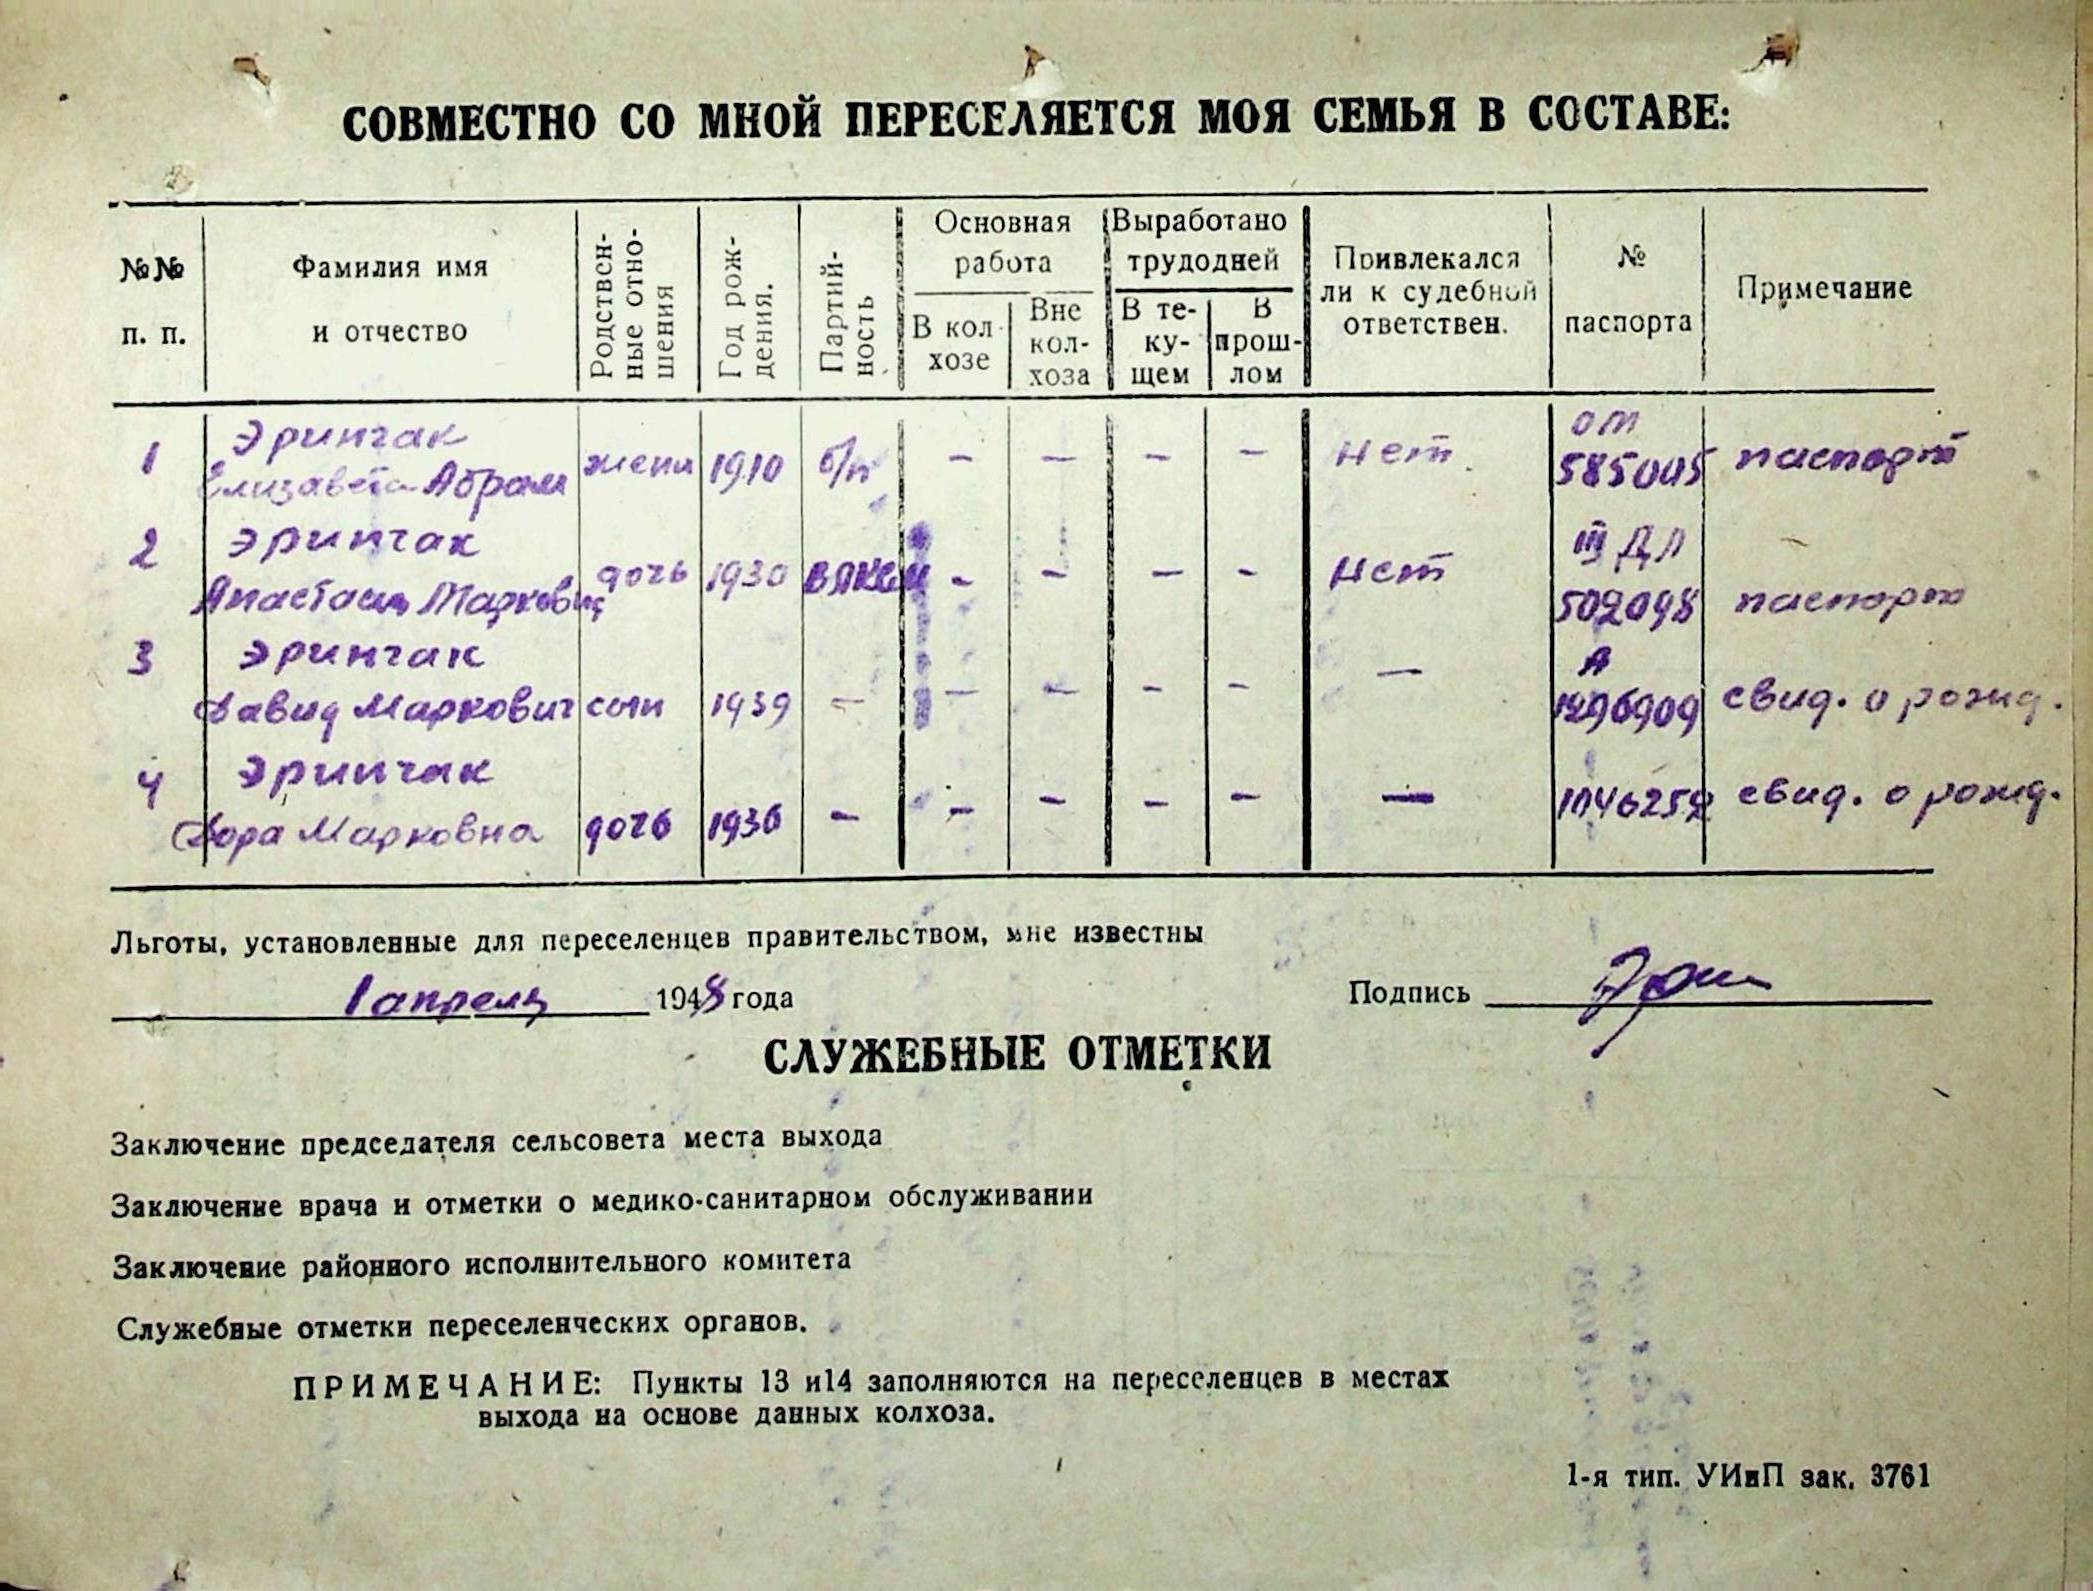 СОВМЕСТНО СО МНОЙ ПЕРЕСЕЛЯЕТСЯ МОЯ СЕМЬЯ В СОСТАВЕ:
№№ п. п.
Фамилия имя и отчество
Родствен-ные отно-шения
Год рож-дения.
Партий-ность
Основная работа
В кол-хозе
Вне кол-хоза
Выработано трудодней
В те-ку-щем
В прош-лом
Привлекался ли к судебной ответствен.
№ паспорта
Примечание
1 Эринчак Елизавета Абрам жена 1910 б/п – – – – Нет ОМ 585005 паспорт
2 Эринчак Анастасия Маркович дочь 1930 ВЛКСМ – – – – Нет III ДЛ 502098 паспорт
3 Эринчак Давид Маркович сын 1939 – – – – – – А 1296909 свид. о рожд.
4 Эринчак Дора Марковна дочь 1936 – – – – – – 1046252 свид. о рожд.
Льготы, установленные для переселенцев правительством, мне известны
1 апреля 1948 года
Подпись
СЛУЖЕБНЫЕ ОТМЕТКИ
Заключение председателя сельсовета места выхода
Заключение врача и отметки о медико-санитарном обслуживании
Заключение районного исполнительного комитета
Служебные отметки переселенческих органов.
ПРИМЕЧАНИЕ: Пункты 13 и14 заполняются на переселенцев в местах
выхода на основе данных колхоза.
1-я тип. УИиП зак. 3761